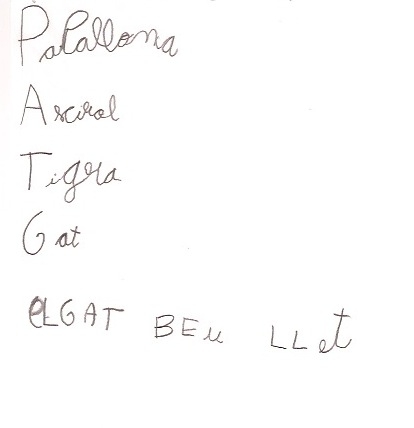 Papallona
Asciral
Tigra
Gat
EL GAT BEu LLet